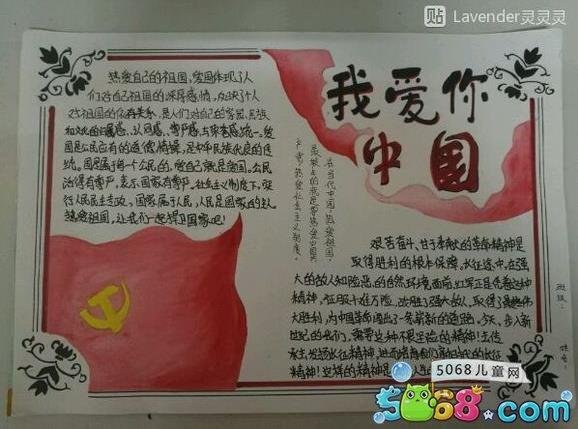 贴 Lavender灵灵灵
我爱你
中国
热爱自己的祖国,爱国体现了人
们对自己祖国的深厚感情,反映了个人
对祖国的依存关系,是人们对自己的家园、民族
和文化的归属感、认同感、尊严感与荣誉感统一。爱
国是公民应有的道德情操,是中华民族优良的传
统。国是属于每个公民的,爱自己就是爱国。公民
活得有尊严,表示国家有尊严。社会主义制度下,实
行人民民主专政,国家属于人民,人民是国家的主人
热爱祖国,让我们一起捍卫国家吧!
在当代中国,热爱祖国,
最核心的就是要热爱中国共
产党,热爱社会主义制度。
艰苦奋斗、甘于奉献的革命精神是
取得胜利的根本保障。长征途中,在强
大的敌人和险恶的自然环境面前,红军正是凭着这种
精神,征服千难万险,战胜了强大敌人,取得了伟大
大胜利,为中国革命闯出了一条崭新的道路。今天,步入新
世纪的我们,需要这种不畏艰险的精神!去传
承
长征精神
精神!这样的精神是
班级:
姓名:
5068儿童网
5068.com